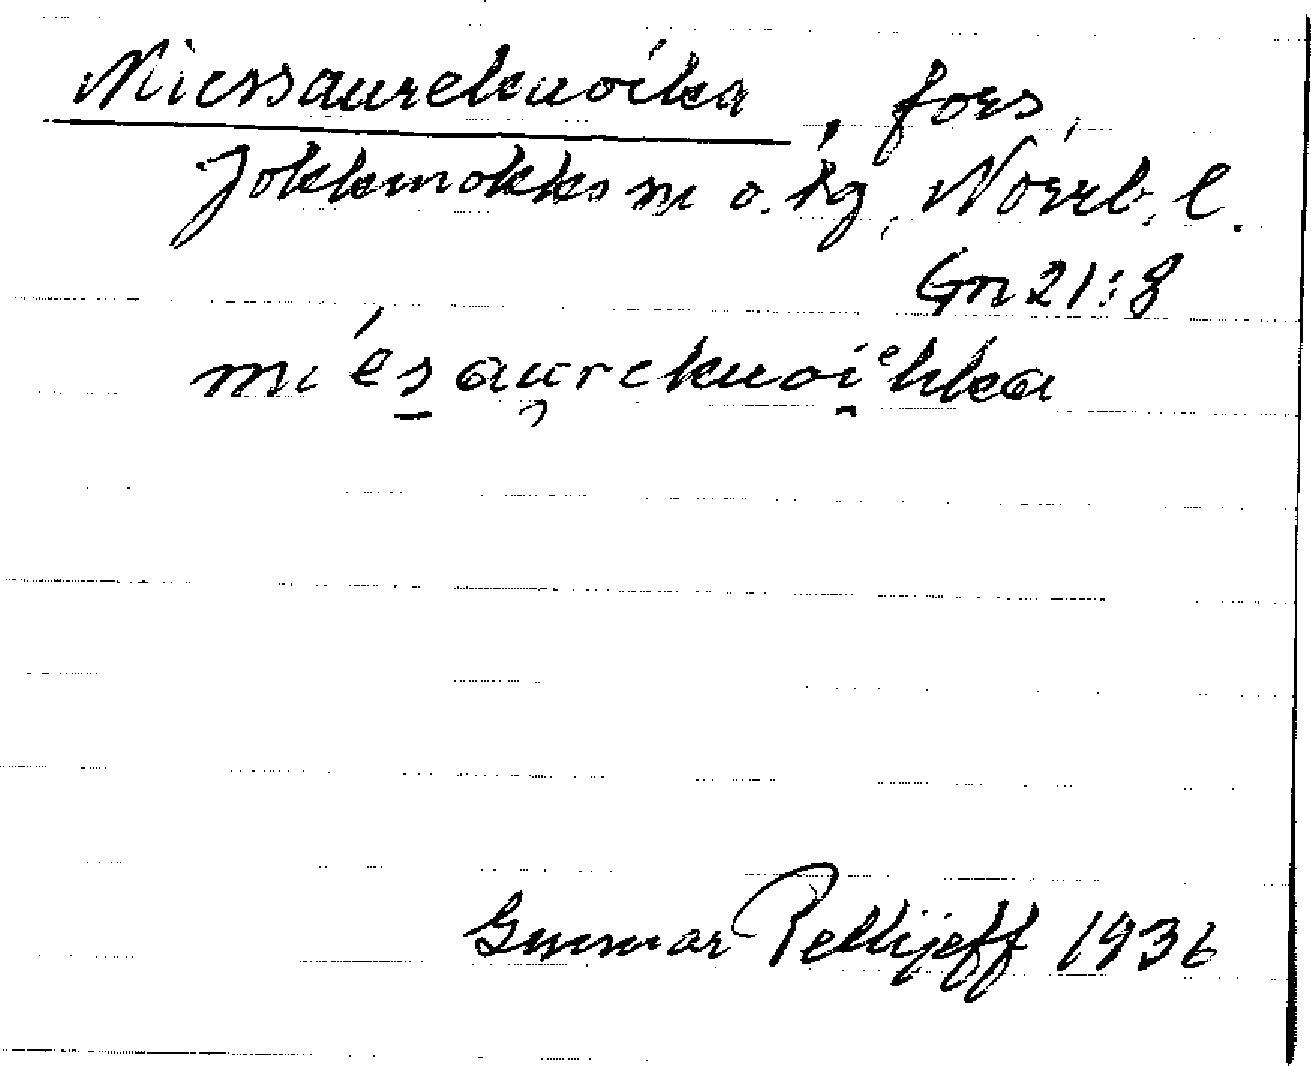 Miessaurekuoika, fors,
Jokkmokks sn o. tg, Norrb. l.
Gn 21:8
miésaurekuoiᵉhka
Gunnar Pellijeff 1936